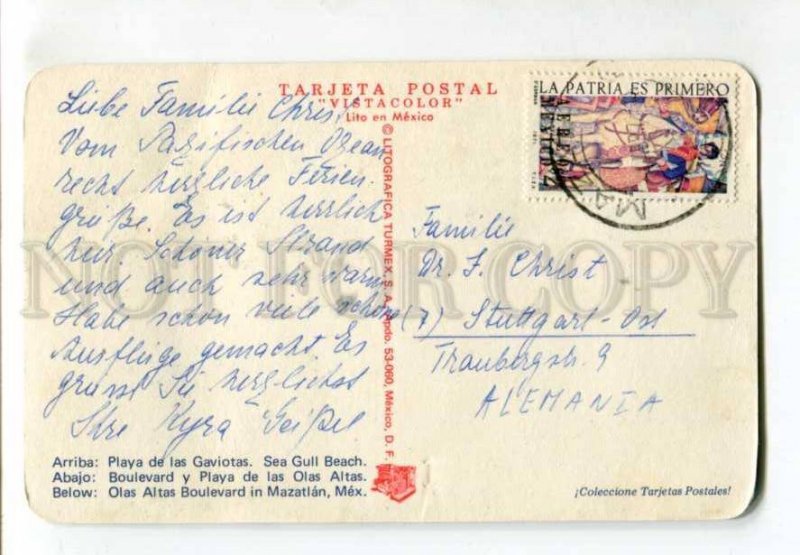 TARJETA POSTAL
"VISTACOLOR"
Lito en México
LA PATRIA ES PRIMERO
AEREO
MEXICO
MAZ
Liebe Familie Christ,
Vom Pazifischen Ozean
recht herzliche Ferien-
grüße. Es ist herrlich
hier. Schöner Strand
und auch sehr warm
Habe schon viele schöne
Ausflüge gemacht. Es
grüsst Sie herzlichst
Ihre Kyra Geißel
© LITOGRAFICA TURMEX, S. A. Apdo. 53-060, México, D. F.
Familie
Dr. F. Christ
(7) Stuttgart-Ost
Traubergstr. 9
ALEMANIA
Arriba: Playa de las Gaviotas. Sea Gull Beach.
Abajo: Boulevard y Playa de las Olas Altas.
Below: Olas Altas Boulevard in Mazatlán, Méx.
¡Coleccione Tarjetas Postales!
NOT FOR COPY